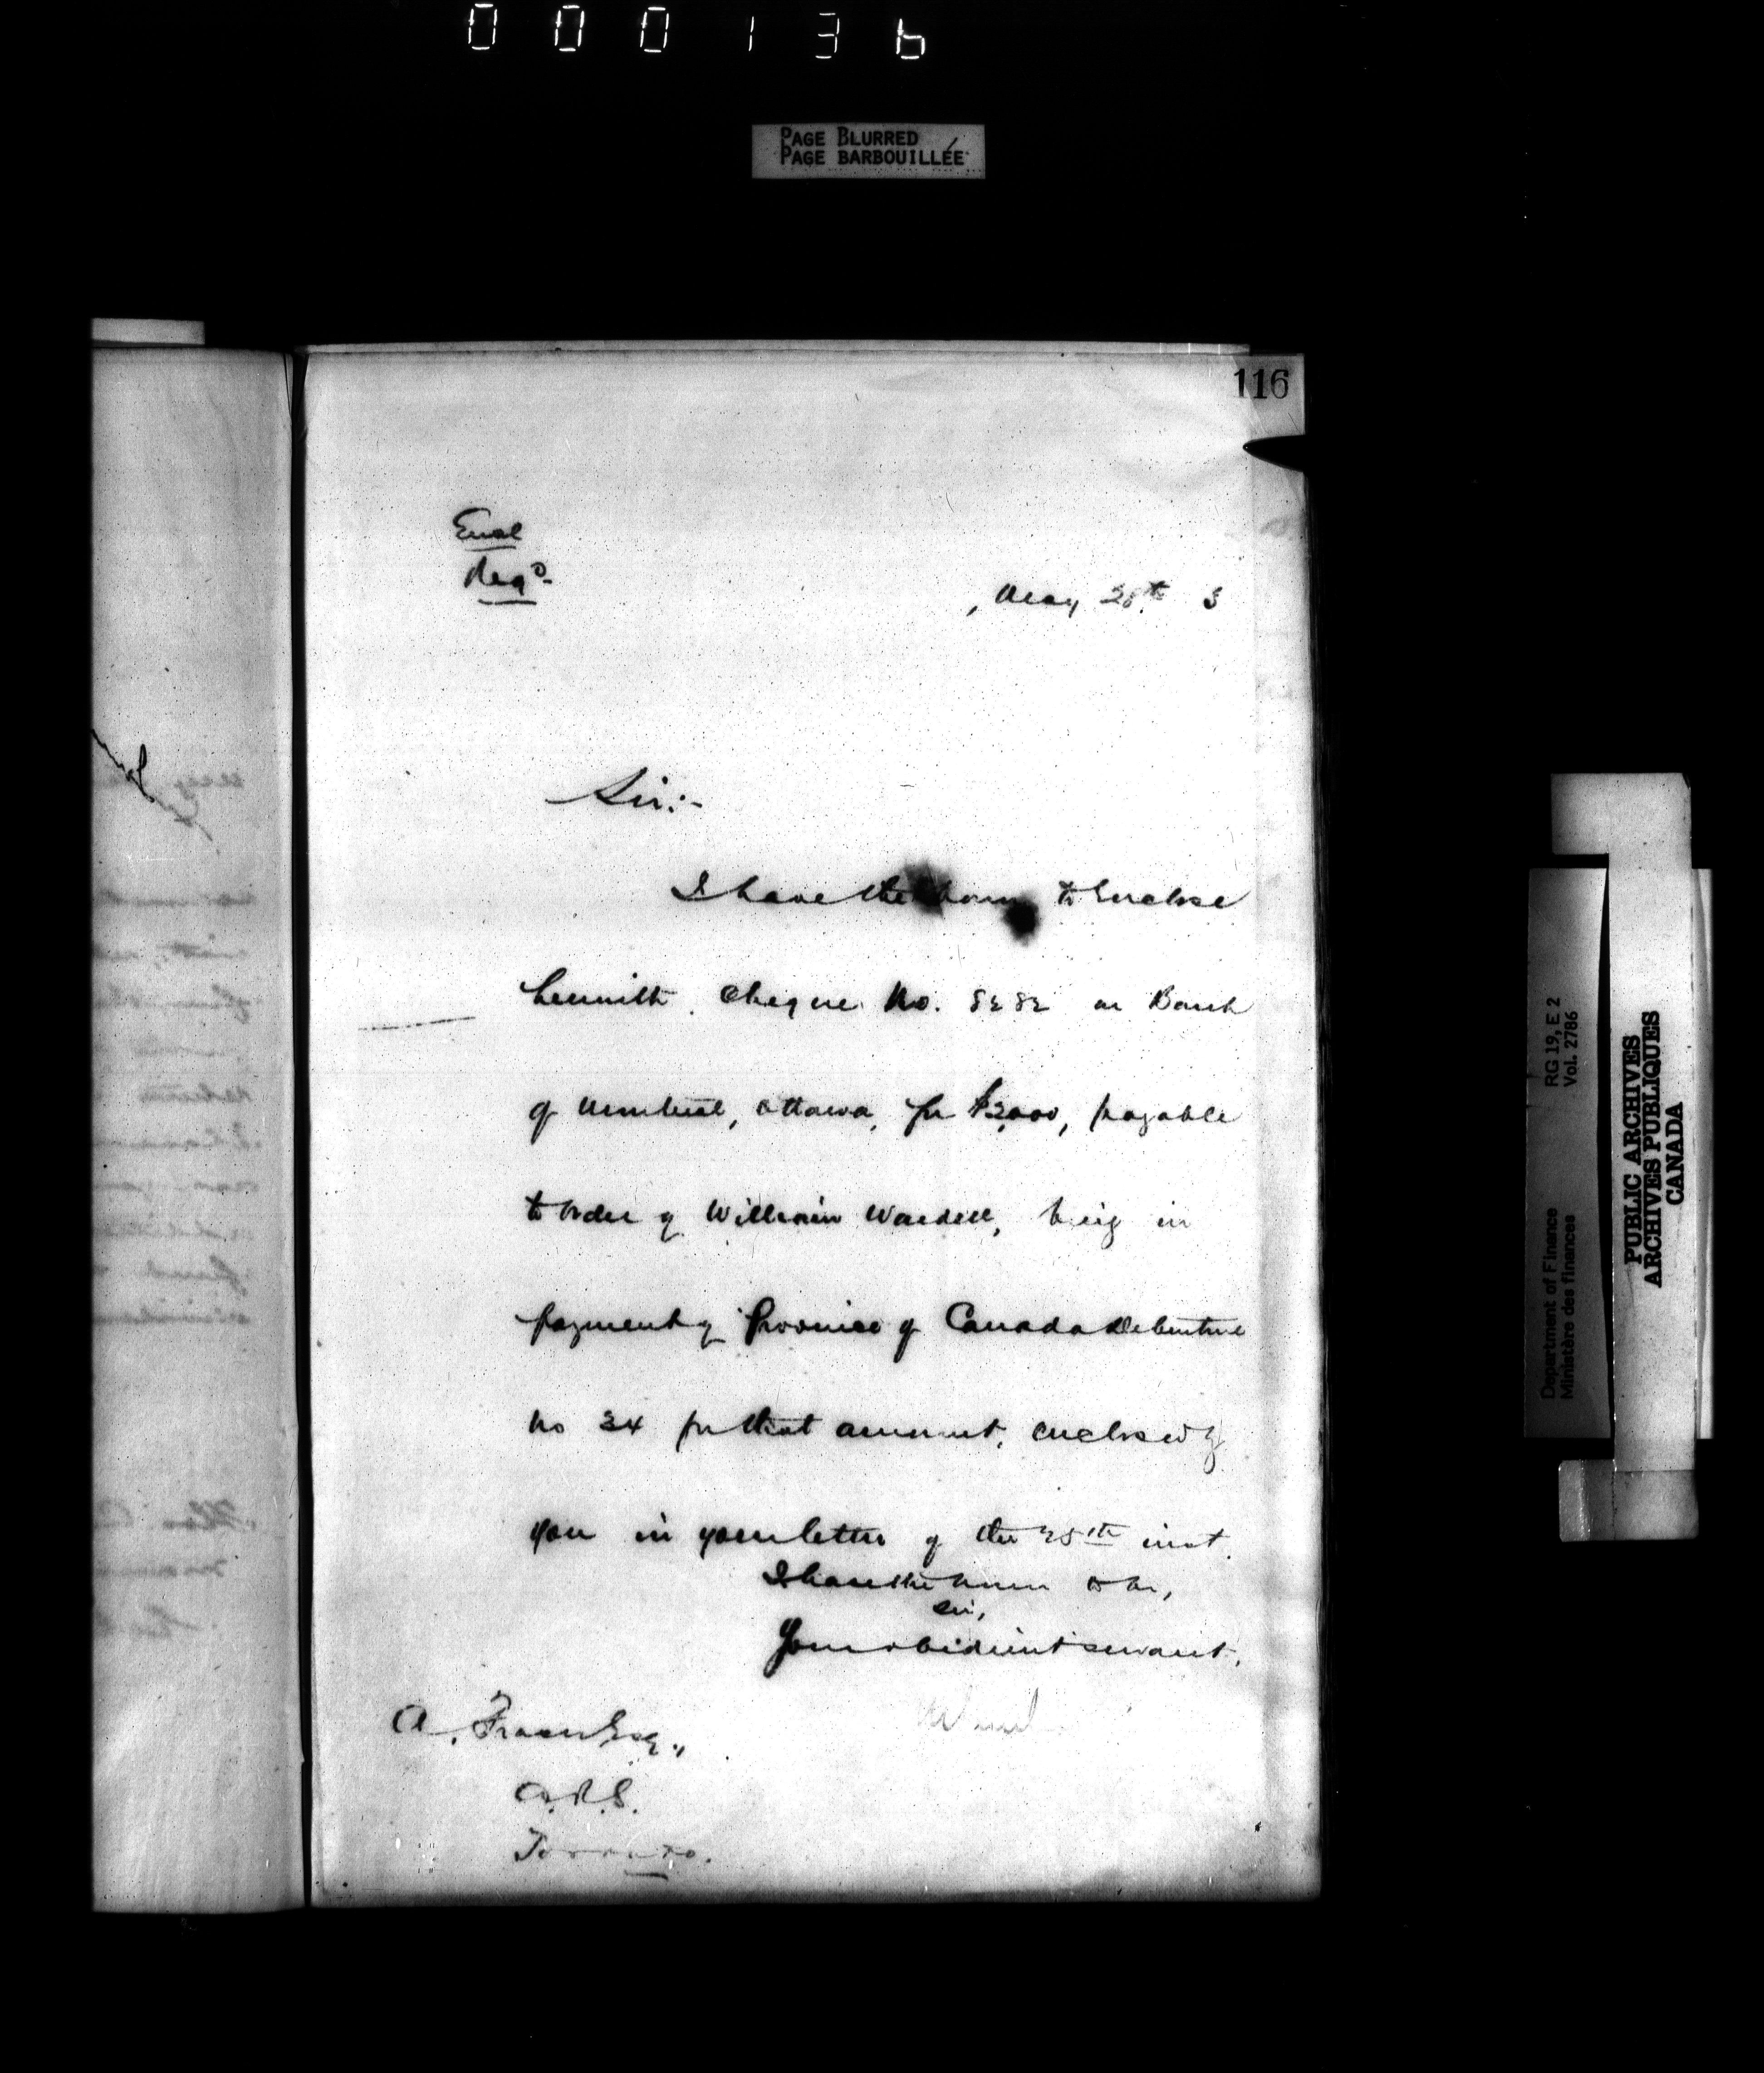 000136
PAGE BLURRED
PAGE BARBOUILLÉE
116
Encl
Regd
, May 28th 3
Sir:-
I have the honor to enclose
herewith cheque No. 8282 on Bank
of Montreal, Ottawa, for $2,000, payable
to order of William Wardell, being in
payment of Province of Canada Debenture
No 34 for that amount, enclosed by
you in your letter of the 25th inst.
I have the honor to be,
Sir,
Your obedient servant,
A. Fraser Esq.,
Toronto.
Department of Finance RG 19, E 2
Ministère des finances Vol. 2786
PUBLIC ARCHIVES
ARCHIVES PUBLIQUES
CANADA